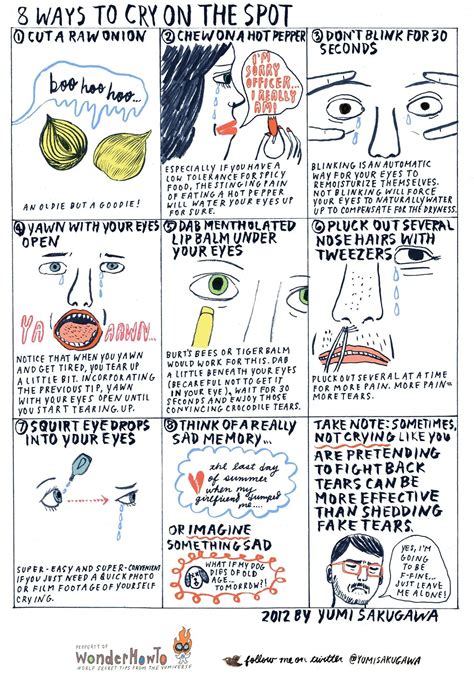 8 WAYS TO CRY ON THE SPOT
① CUT A RAW ONION
boo hoo hoo...
AN OLDIE BUT A GOODIE!
② CHEW ON A HOT PEPPER
I'M
SORRY
OFFICER...
I REALLY
AM!
ESPECIALLY IF YOU HAVE A
LOW TOLERANCE FOR SPICY
FOOD, THE STINGING PAIN
OF EATING A HOT PEPPER
WILL WATER YOUR EYES UP
FOR SURE.
③ DON'T BLINK FOR 30
SECONDS
BLINKING IS AN AUTOMATIC
WAY FOR YOUR EYES TO
REMOISTURIZE THEMSELVES.
NOT BLINKING WILL FORCE
YOUR EYES TO NATURALLY WATER
UP TO COMPENSATE FOR THE DRYNESS.
④ YAWN WITH YOUR EYES
OPEN
YA AAWN...
NOTICE THAT WHEN YOU YAWN
AND GET TIRED, YOU TEAR UP
A LITTLE BIT. INCORPORATING
THE PREVIOUS TIP, YAWN
WITH YOUR EYES OPEN UNTIL
YOU START TEARING UP.
⑤ DAB MENTHOLATED
LIP BALM UNDER
YOUR EYES
BURT'S BEES OR TIGER BALM
WOULD WORK FOR THIS. DAB
A LITTLE BENEATH YOUR EYES
(BE CAREFUL NOT TO GET IT
IN YOUR EYE), WAIT FOR 30
SECONDS AND ENJOY THOSE
CONVINCING CROCODILE TEARS.
⑥ PLUCK OUT SEVERAL
NOSE HAIRS WITH
TWEEZERS
PLUCK OUT SEVERAL AT A TIME
FOR MORE PAIN. MORE PAIN=
MORE TEARS.
⑦ SQUIRT EYE DROPS
INTO YOUR EYES
SUPER-EASY AND SUPER-CONVENIENT
IF YOU JUST NEED A QUICK PHOTO
OR FILM FOOTAGE OF YOURSELF
CRYING.
⑧ THINK OF A REALLY
SAD MEMORY...
the last day
of summer
when my
girlfriend dumped
me....
OR IMAGINE
SOMETHING SAD
WHAT IF MY DOG
DIES OF OLD
AGE...
TOMORROW?!
TAKE NOTE: SOMETIMES,
NOT CRYING LIKE YOU
ARE PRETENDING
TO FIGHT BACK
TEARS CAN BE
MORE EFFECTIVE
THAN SHEDDING
FAKE TEARS.
YES, I'M
GOING
TO BE
F-FINE...
JUST LEAVE
ME ALONE!
2012 BY YUMI SAKUGAWA
PROPERTY OF
WonderHowTo
WORLD SECRET TIPS FROM THE YUMIVERSE
follow me on twitter @YUMISAKUGAWA